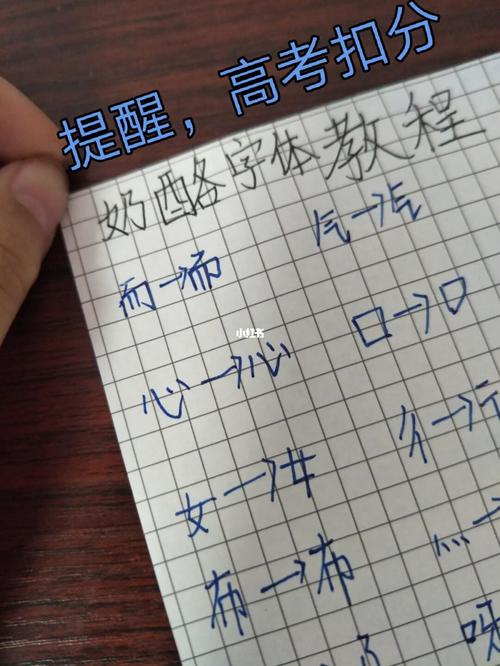 提醒，高考扣分
奶酪字体教程
而→而
气→气
心→心
口→口
女→女
布→布
小红书